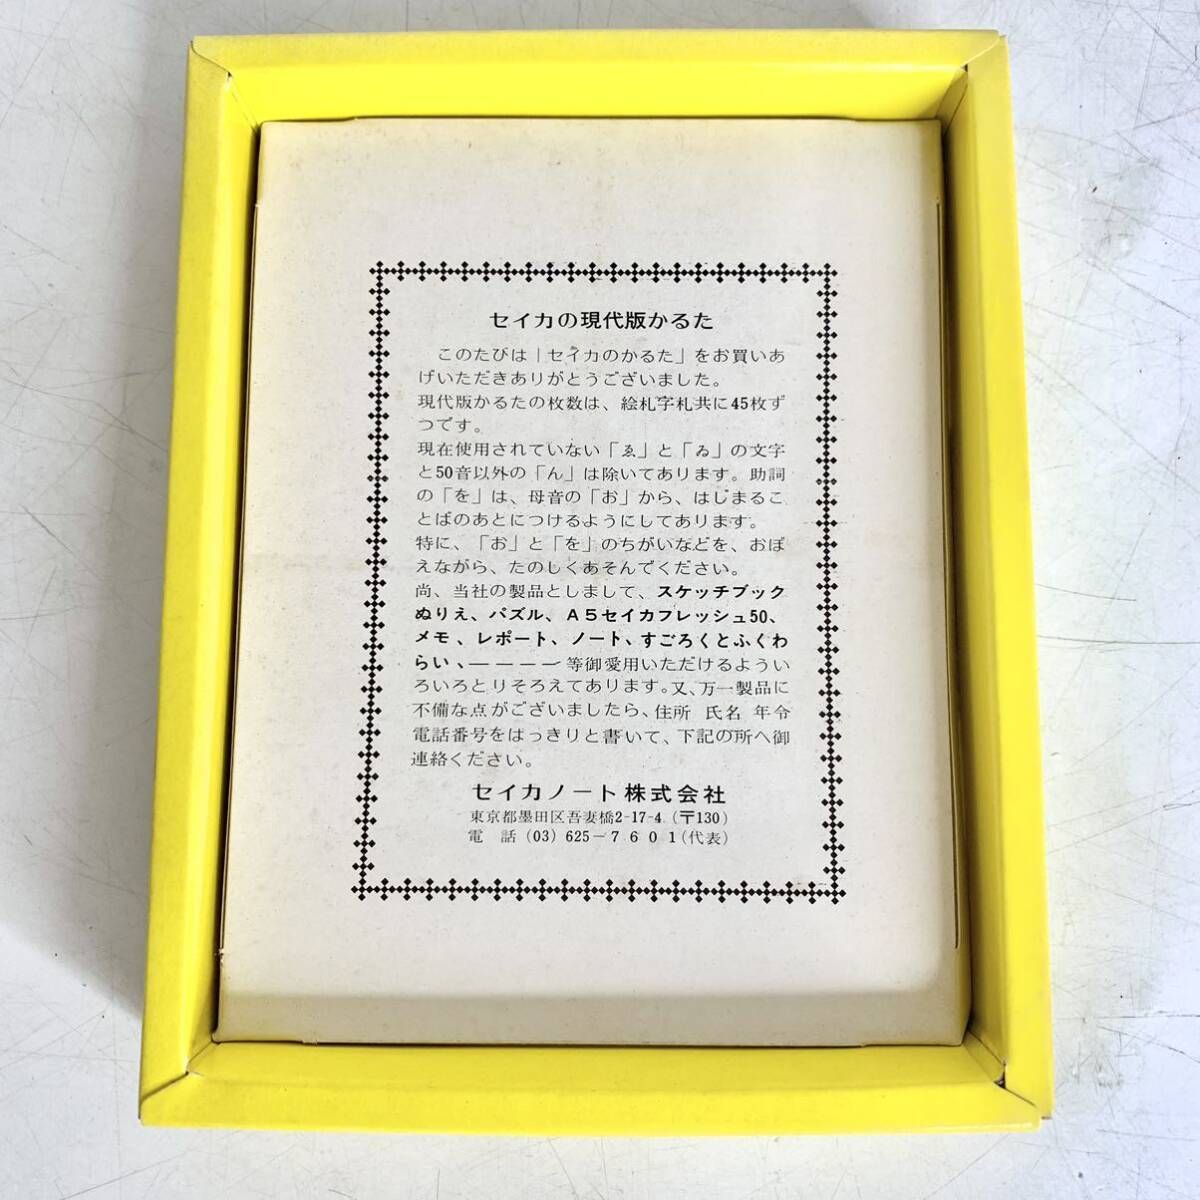 セイカの現代版かるた
このたびは「セイカのかるた」をお買いあ
げいただきありがとうございました。
現代版かるたの枚数は、絵札字札共に45枚ず
つです。
現在使用されていない「ゑ」と「ゐ」の文字
と50音以外の「ん」は除いてあります。助詞
の「を」は、母音の「お」から、はじまるこ
とばのあとにつけるようにしてあります。
特に、「お」と「を」のちがいなどを、おぼ
えながら、たのしくあそんでください。
尚、当社の製品としまして、スケッチブック
ぬりえ、パズル、A5セイカフレッシュ50、
メモ、レポート、ノート、すごろくとふくわ
らい、————等御愛用いただけるようい
ろいろとりそろえてあります。又、万一製品に
不備な点がございましたら、住所 氏名 年令
電話番号をはっきりと書いて、下記の所へ御
連絡ください。
セイカノート株式会社
東京都墨田区吾妻橋2-17-4 (〒130)
電 話 (03) 625-7601(代表)